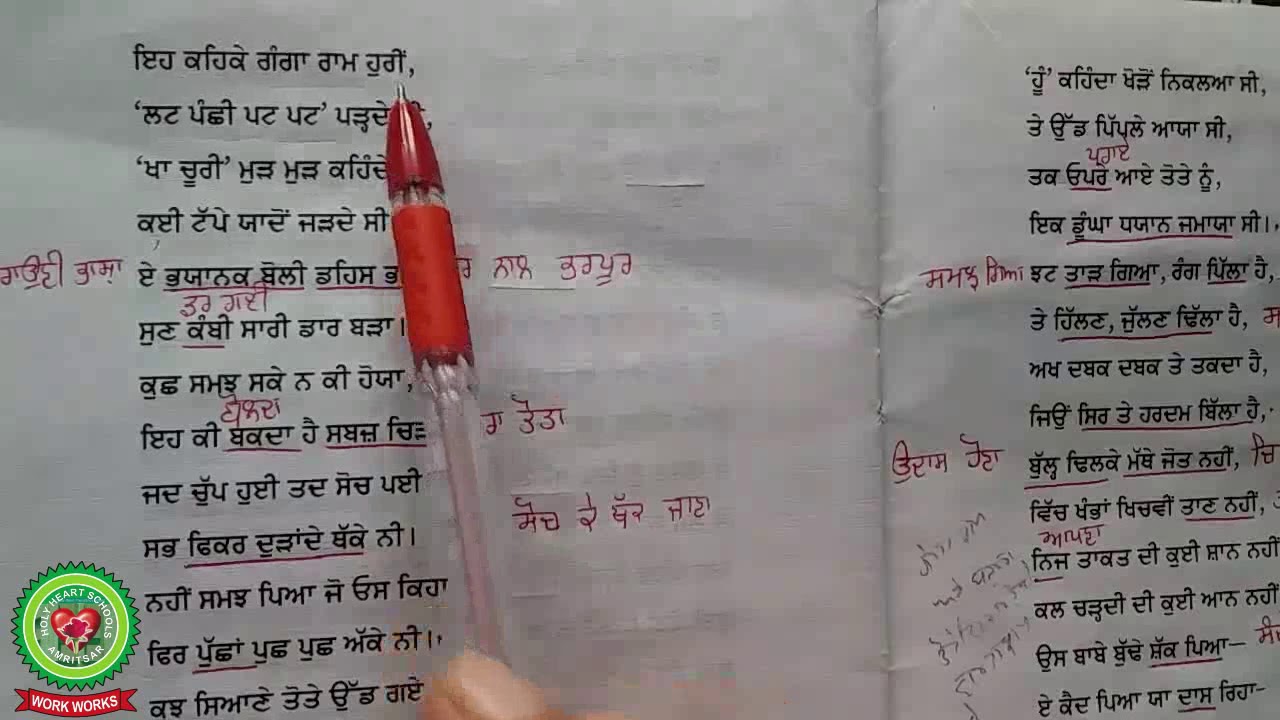 ਇਹ ਕਹਿਕੇ ਗੰਗਾ ਰਾਮ ਹੁਰੀਂ,
‘ਲਟ ਪੰਛੀ ਪਟ ਪਟ’ ਪੜ੍ਹਦੇ
‘ਖਾ ਚੂਰੀ’ ਮੁੜ ਮੁੜ ਕਹਿੰਦੇ
ਕਈ ਟੱਪੇ ਯਾਦੋਂ ਜੜਦੇ ਸੀ
ਏ ਭਯਾਨਕ ਬੋਲੀ ਡਹਿਸ ਨਾਲ ਭਰਪੂਰ
ਡਰ ਗਈ
ਸੁਣ ਕੰਬੀ ਸਾਰੀ ਡਾਰ ਬੜਾ।
ਕੁਛ ਸਮਝ ਸਕੇ ਨ ਕੀ ਹੋਯਾ,
ਬੋਲਦਾ
ਇਹ ਕੀ ਬਕਦਾ ਹੈ ਸਬਜ਼ ਤੋਤਾ
ਜਦ ਚੁੱਪ ਹੁਈ ਤਦ ਸੋਚ ਪਈ
ਸੋਚ ਕੇ ਥੱਕ ਜਾਣਾ
ਸਭ ਫਿਕਰ ਦੁੜਾਂਦੇ ਥੱਕੇ ਨੀ।
ਨਹੀਂ ਸਮਝ ਪਿਆ ਜੋ ਓਸ ਕਿਹਾ
ਫਿਰ ਪੁੱਛਾਂ ਪੁਛ ਪੁਛ ਅੱਕੇ ਨੀ।
ਕੁਝ ਸਿਆਣੇ ਤੋਤੇ ਉੱਡ ਗਏ
‘ਹੂੰ’ ਕਹਿੰਦਾ ਖੋੜੋਂ ਨਿਕਲਆ ਸੀ,
ਤੇ ਉੱਡ ਪਿੱਪਲੇ ਆਯਾ ਸੀ,
ਪਰਾਏ
ਤਕ ਓਪਰੇ ਆਏ ਤੋਤੇ ਨੂੰ,
ਇਕ ਡੂੰਘਾ ਧਯਾਨ ਜਮਾਯਾ ਸੀ।
ਸਮਝ ਗਿਆ ਝਟ ਤਾੜ ਗਿਆ, ਰੰਗ ਪਿੱਲਾ ਹੈ,
ਤੇ ਹਿੱਲਣ, ਜੁੱਲਣ ਢਿੱਲਾ ਹੈ,
ਅਖ ਦਬਕ ਦਬਕ ਤੇ ਤਕਦਾ ਹੈ,
ਜਿਉਂ ਸਿਰ ਤੇ ਹਰਦਮ ਬਿੱਲਾ ਹੈ,
ਉਦਾਸ ਹੋਣਾ ਬੁੱਲ੍ਹ ਢਿਲਕੇ ਮੱਥੇ ਜੋਤ ਨਹੀਂ,
ਵਿੱਚ ਖੰਭਾਂ ਖਿਚਵੀਂ ਤਾਣ ਨਹੀਂ,
ਆਪਣਾ
ਨਿਜ ਤਾਕਤ ਦੀ ਕੁਈ ਸ਼ਾਨ ਨਹੀਂ
ਕਲ ਚੜ੍ਹਦੀ ਦੀ ਕੁਈ ਆਨ ਨਹੀਂ
ਉਸ ਬਾਬੇ ਬੁੱਢੇ ਸ਼ੱਕ ਪਿਆ-
ਏ ਕੈਦ ਪਿਆ ਯਾ ਦਾਸ ਰਿਹਾ-
HOLY HEART SCHOOLS
AMRITSAR
WORK WORKS